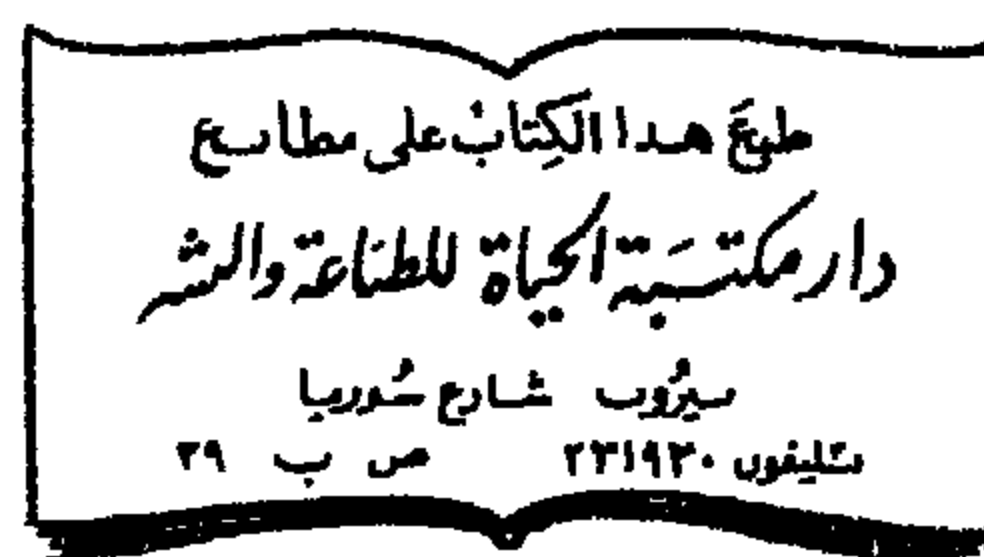 طبعَ هذا الكِتابُ على مطابع
دار مكتَبة الحياة للطباعة والنشر
بيرُوت شارع سُوريا
تليفون ٢٣١٩٣٠ ص ب ٣٩